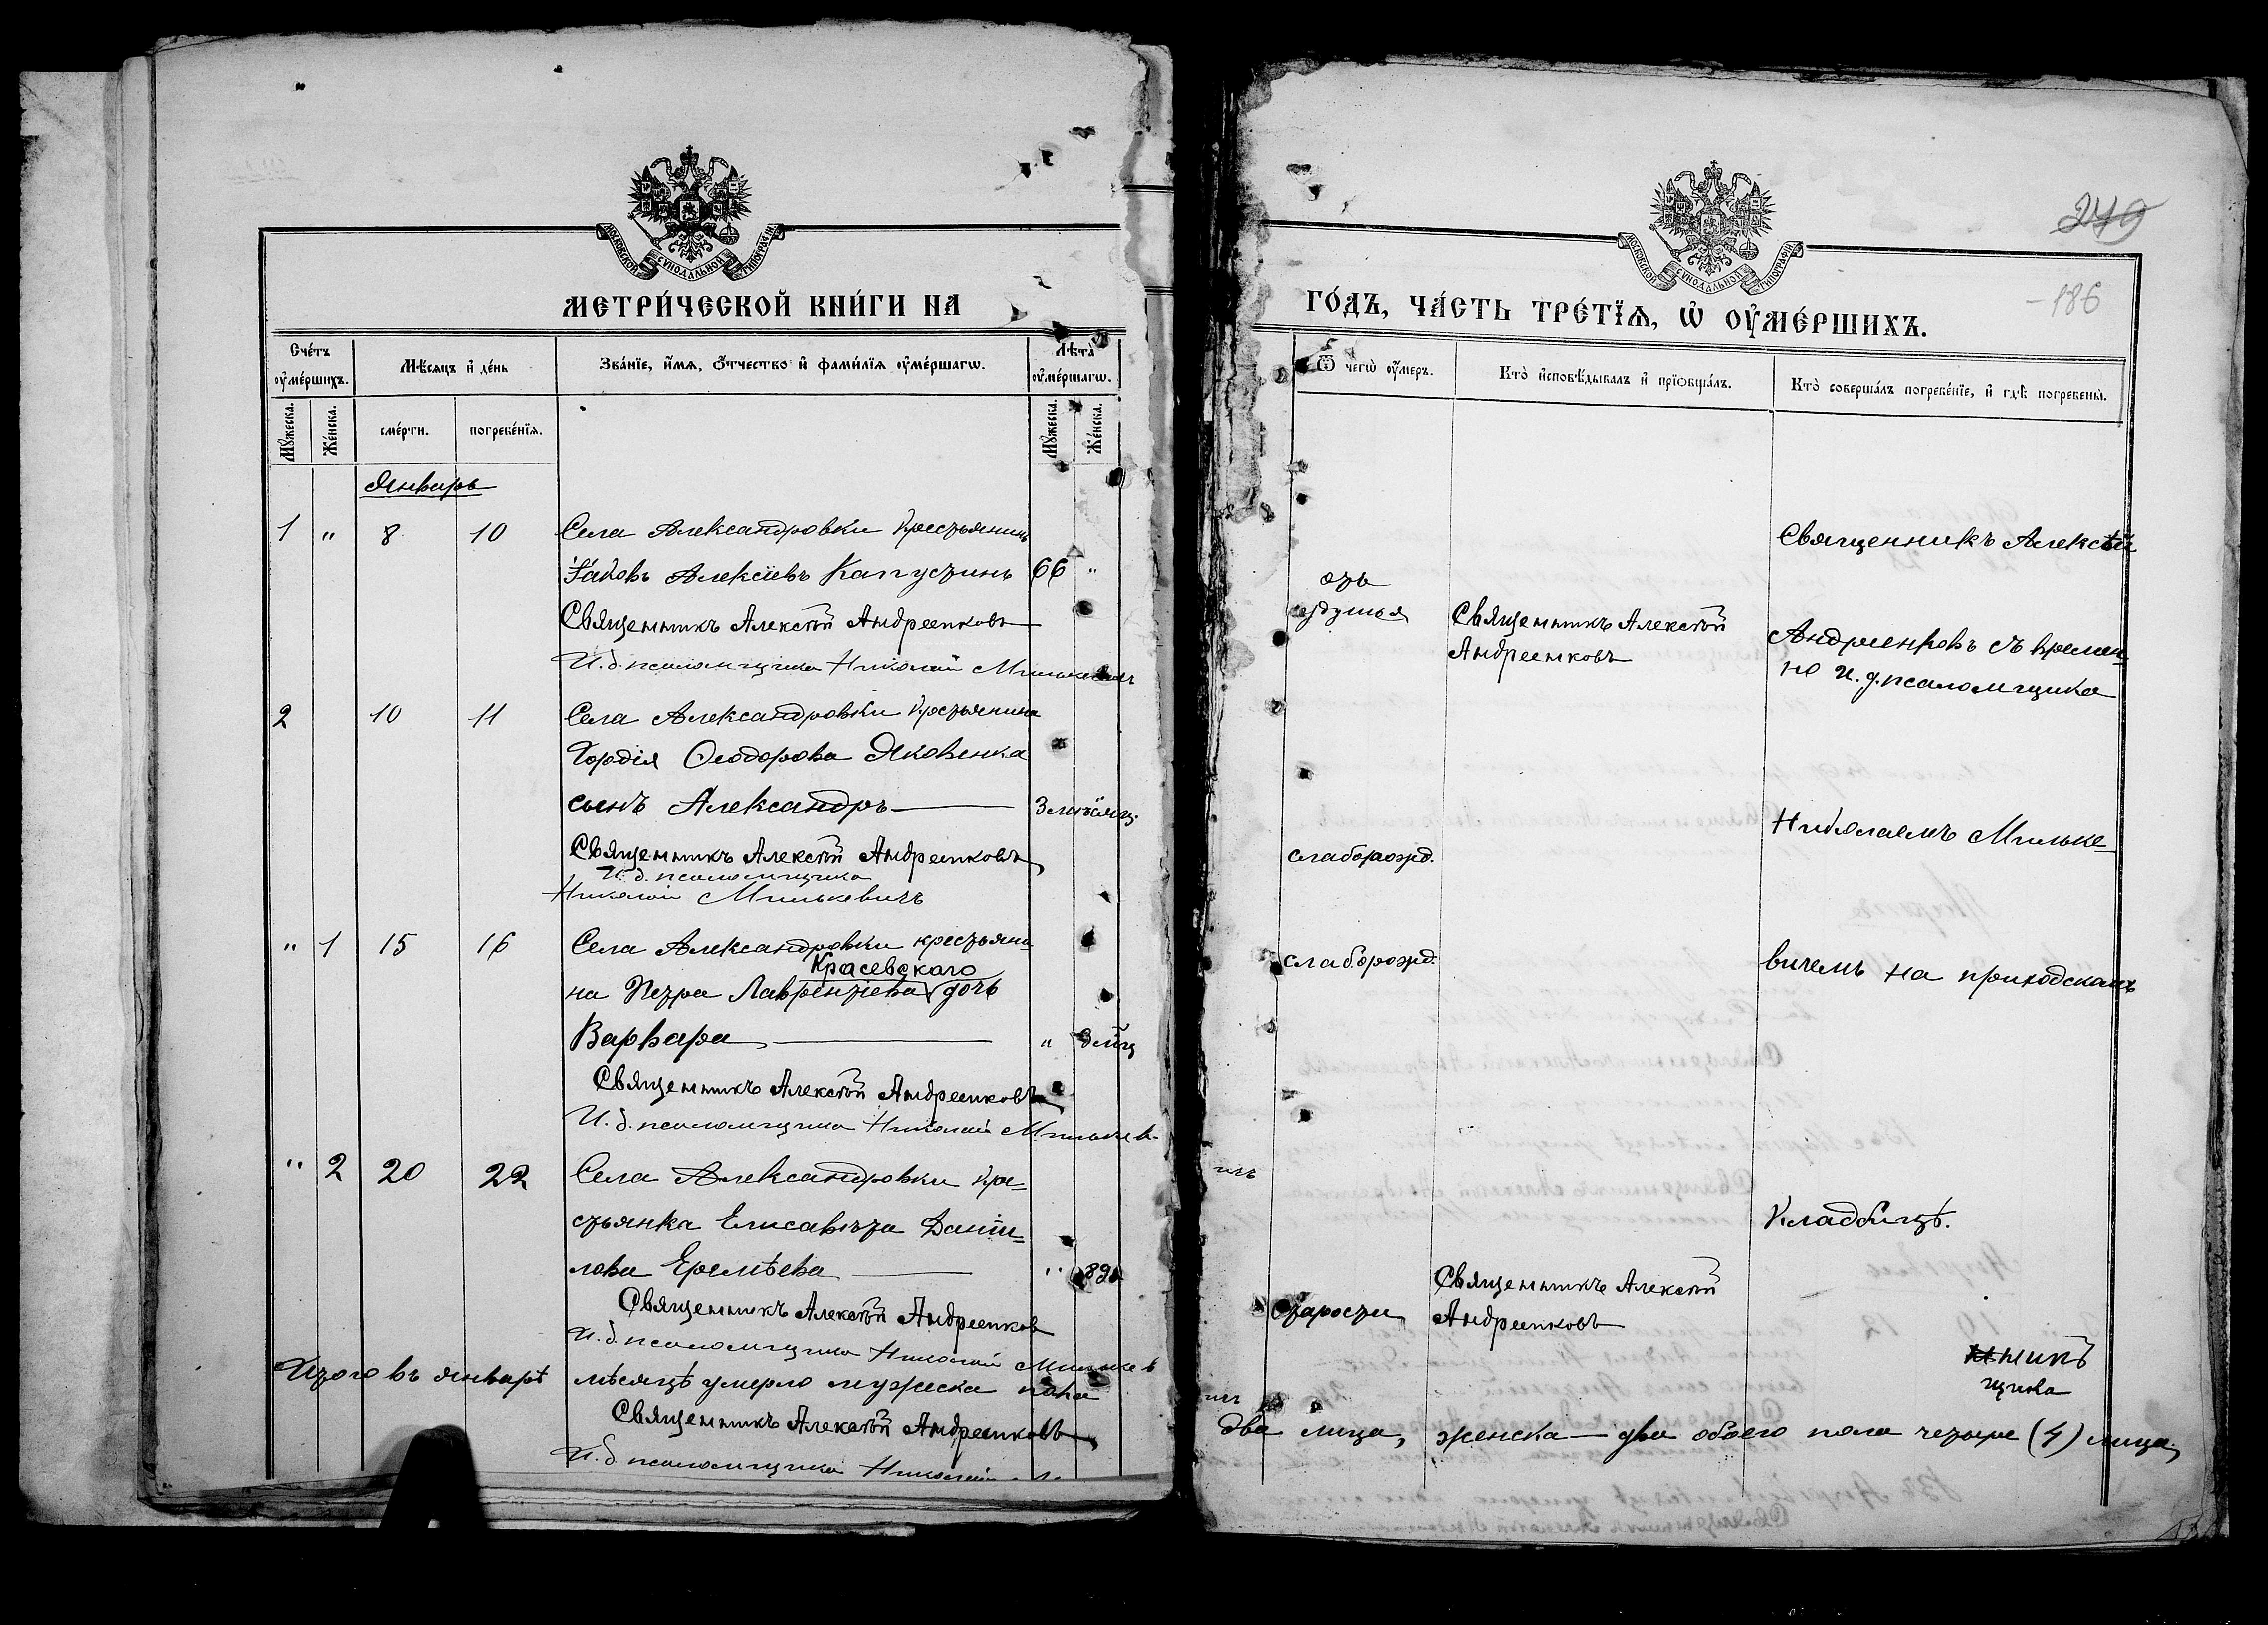 МОСКОВСКОЙ СѴНОДАЛЬНОЙ ТИПОГРАФІИ
МЕТРИ́ЧЕСКОЙ КНИ́ГИ НА
Сче́тъ ᲂу҆ме́ршихъ.
Мѣ́сяцъ и҆ де́нь
Зва́нїе, и҆́мѧ, ѻ҆́тчество и҆ фами́лїѧ ᲂу҆ме́ршагѡ.
Лѣ́та ᲂу҆ме́ршагѡ.
Мꙋ́жеска.
Же́нска.
сме́рти.
погребе́нїѧ.
Мꙋ́жеска.
Же́нска.
Январь
1 " 8 10 Села Александровки крестьянинъ
Іаковъ Алексіевъ Капустинъ 66 "
Священникъ Алексѣй Андреенковъ
И. д. псаломщика Николай Милькевичъ
2 10 11 Села Александровки крестьянина
Гордія Ѳеодорова Яковенка
сынъ Александръ 3 мѣсяц.
Священникъ Алексѣй Андреенковъ
И. д. псаломщика
Николай Милькевичъ
" 1 15 16 Села Александровки крестьяни-
Красевскаго
на Петра Лаврентіева дочь
Варвара " 3 мц
Священникъ Алексѣй Андреенковъ
И. д. псаломщика Николай Милькев-
" 2 20 22 Села Александровки кре-
стьянка Елисавета Даніи-
лова Еремѣева "
Священникъ Алексѣй Андреенков
И. д. псаломщика Николай Милькев
Итого въ январѣ мѣсяцѣ умерло мужеска пола
Священникъ Алексѣй Андреенковъ
И. д. псаломщика Николай
249
МОСКОВСКОЙ СѴНОДАЛЬНОЙ ТИПОГРАФІИ
186
ГО́ДЪ, ЧА́СТЬ ТРЕ́ТЇѦ, Ѡ҆ ОУ҆МЕ́РШИХЪ.
Ѿ чегѡ̀ ᲂу҆́меръ.
Кто̀ и҆сповѣ́дывалъ и҆ прїѡбща́лъ.
Кто̀ соверша́лъ погребе́нїе, и҆ гдѣ̀ погребены̀.
Священникъ Алексѣй
отъ
удушья
Священникъ Алексѣй
Андреенковъ
Андреенковъ съ времен-
но и. д. псаломщика
слаборожд.
Николаемъ Мильке-
слаборожд.
вичемъ на приходскомъ
ичъ
кладбищѣ.
старости
Священникъ Алексѣй
Андреенковъ
никъ
щика
ичъ
два лица, женска — два обоего пола четыре (4) лица,